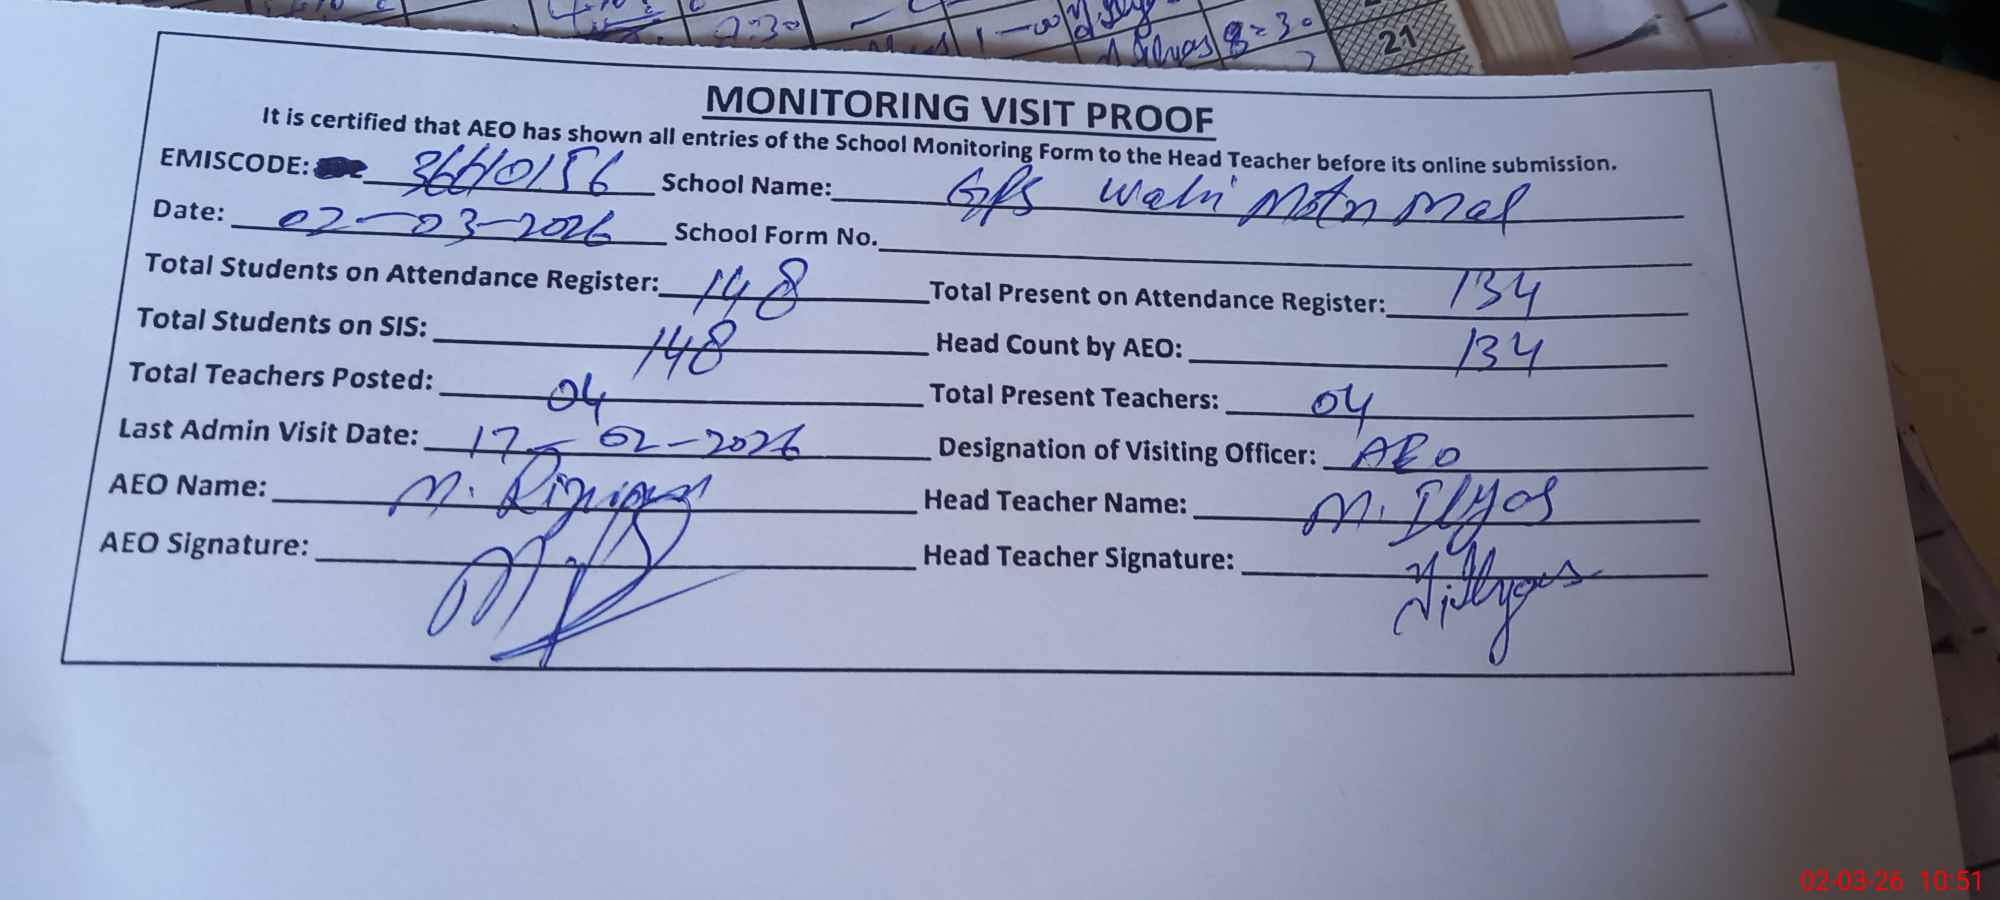 9:30
1-00
Ilyas 8=30
21
MONITORING VISIT PROOF
It is certified that AEO has shown all entries of the School Monitoring Form to the Head Teacher before its online submission.
EMISCODE: 36610156 School Name: GPS Wahi Motn Mal
Date: 02-03-2026 School Form No.
Total Students on Attendance Register: 148 Total Present on Attendance Register: 134
Total Students on SIS: 148 Head Count by AEO: 134
Total Teachers Posted: 04 Total Present Teachers: 04
Last Admin Visit Date: 17-02-2026 Designation of Visiting Officer: AEO
AEO Name: M. Head Teacher Name: M. Ilyas
AEO Signature: Head Teacher Signature: M. Ilyas
02-03-26 10:51